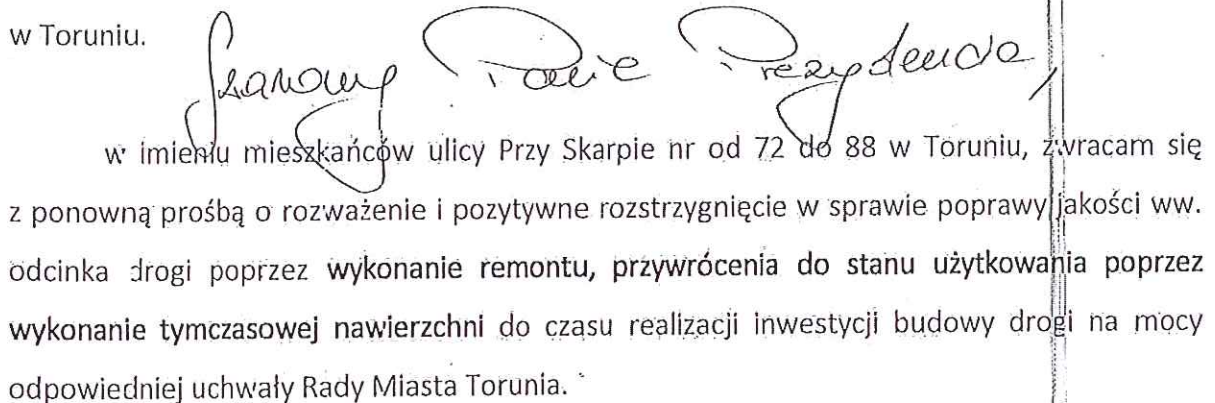 w Toruniu.
Szanowny Panie Prezydencie,
w imieniu mieszkańców ulicy Przy Skarpie nr od 72 do 88 w Toruniu, zwracam się
z ponowną prośbą o rozważenie i pozytywne rozstrzygnięcie w sprawie poprawy jakości ww.
odcinka drogi poprzez wykonanie remontu, przywrócenia do stanu użytkowania poprzez
wykonanie tymczasowej nawierzchni do czasu realizacji inwestycji budowy drogi na mocy
odpowiedniej uchwały Rady Miasta Torunia.